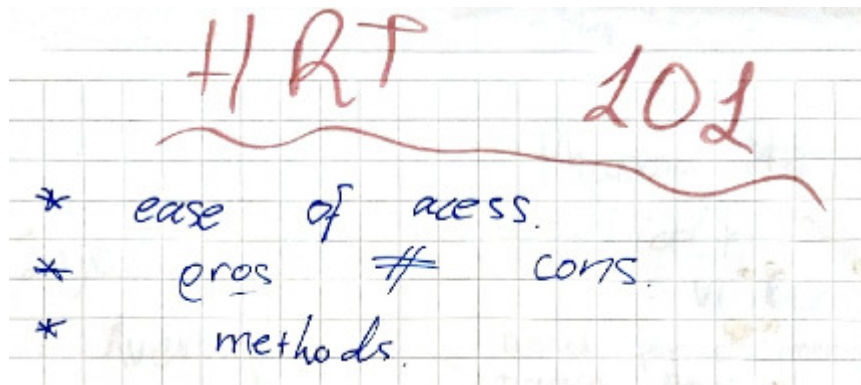 HRT 101
* ease of acess.
* pros # cons.
* methods.